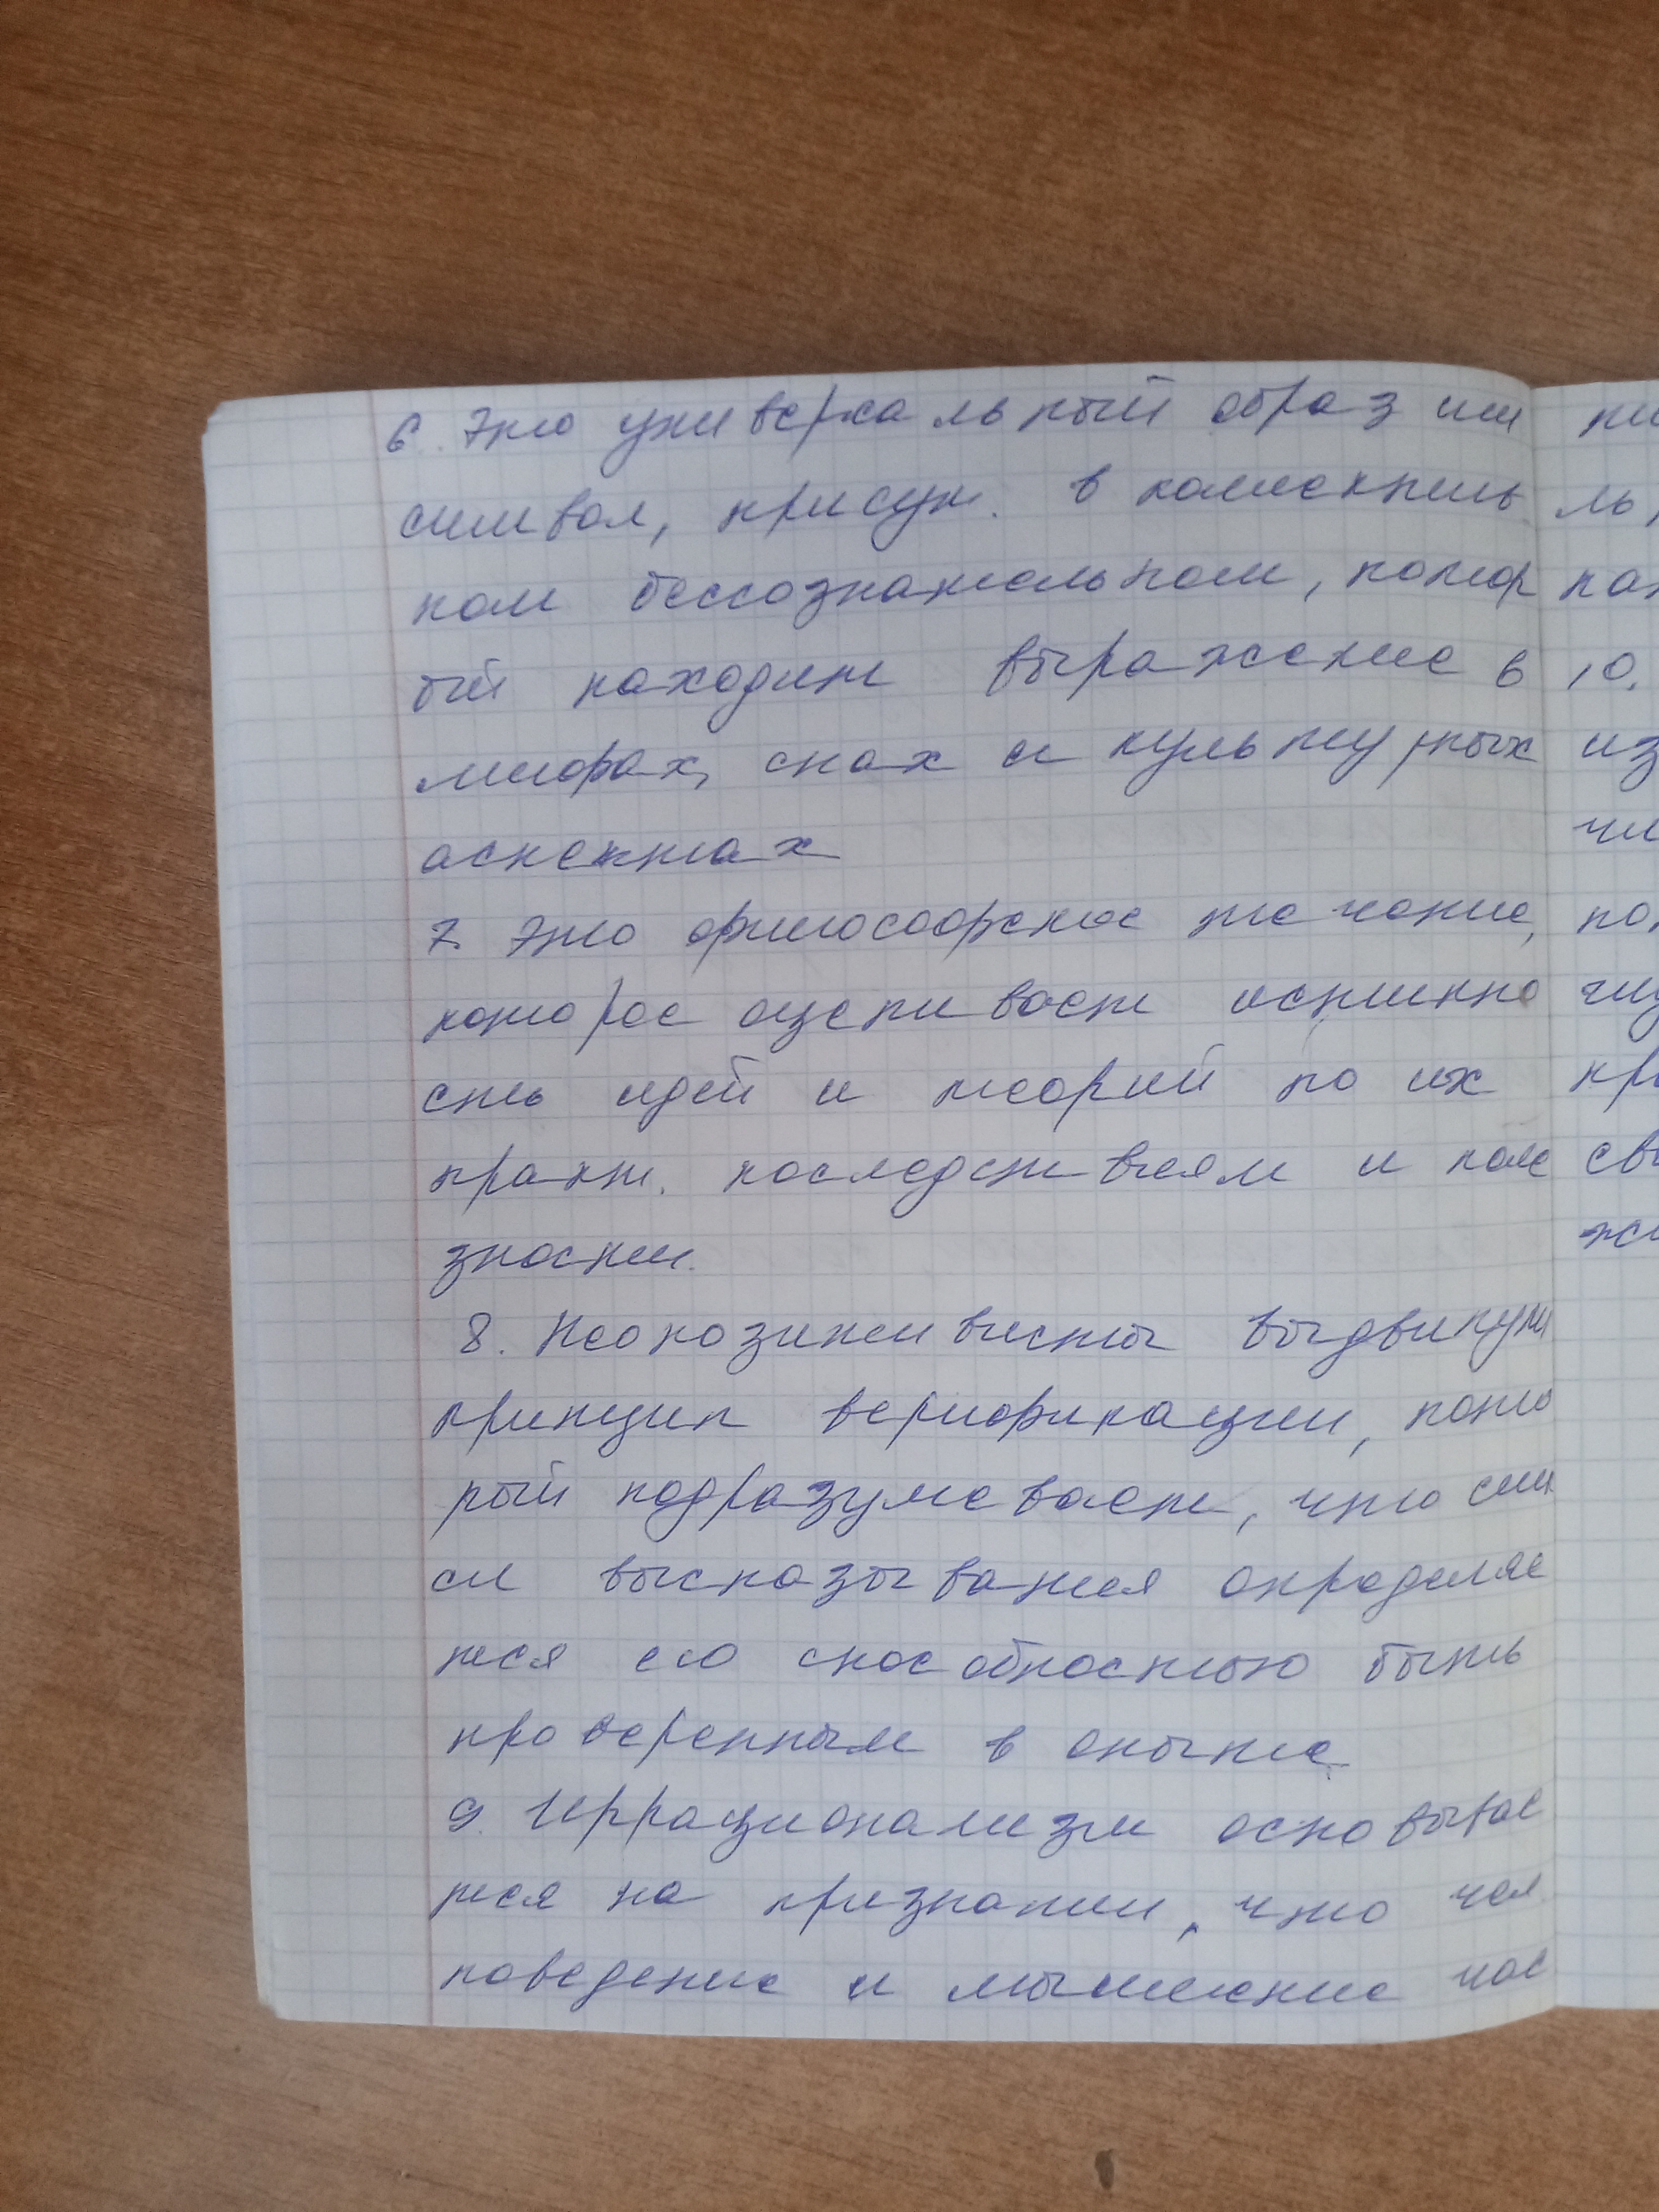 6. Это универсальный образ или
символ, присущ. в коллектив
ном бессознательном, котор
ый находит выражение в
мифах, снах и культурных
аспектах
7. Это философское течение,
которое оценивает истинно
сть идей и теорий по их
практ. последствиям и поле
зности.
8. Неопозитивисты выдвинули
принцип верификации, кото
рый подразумевает, что смы
сл высказывания определяе
тся его способностью быть
проверенным в опыте
9. Иррационализм основывае
тся на признании, что чел
поведение и мышление час
10.
из